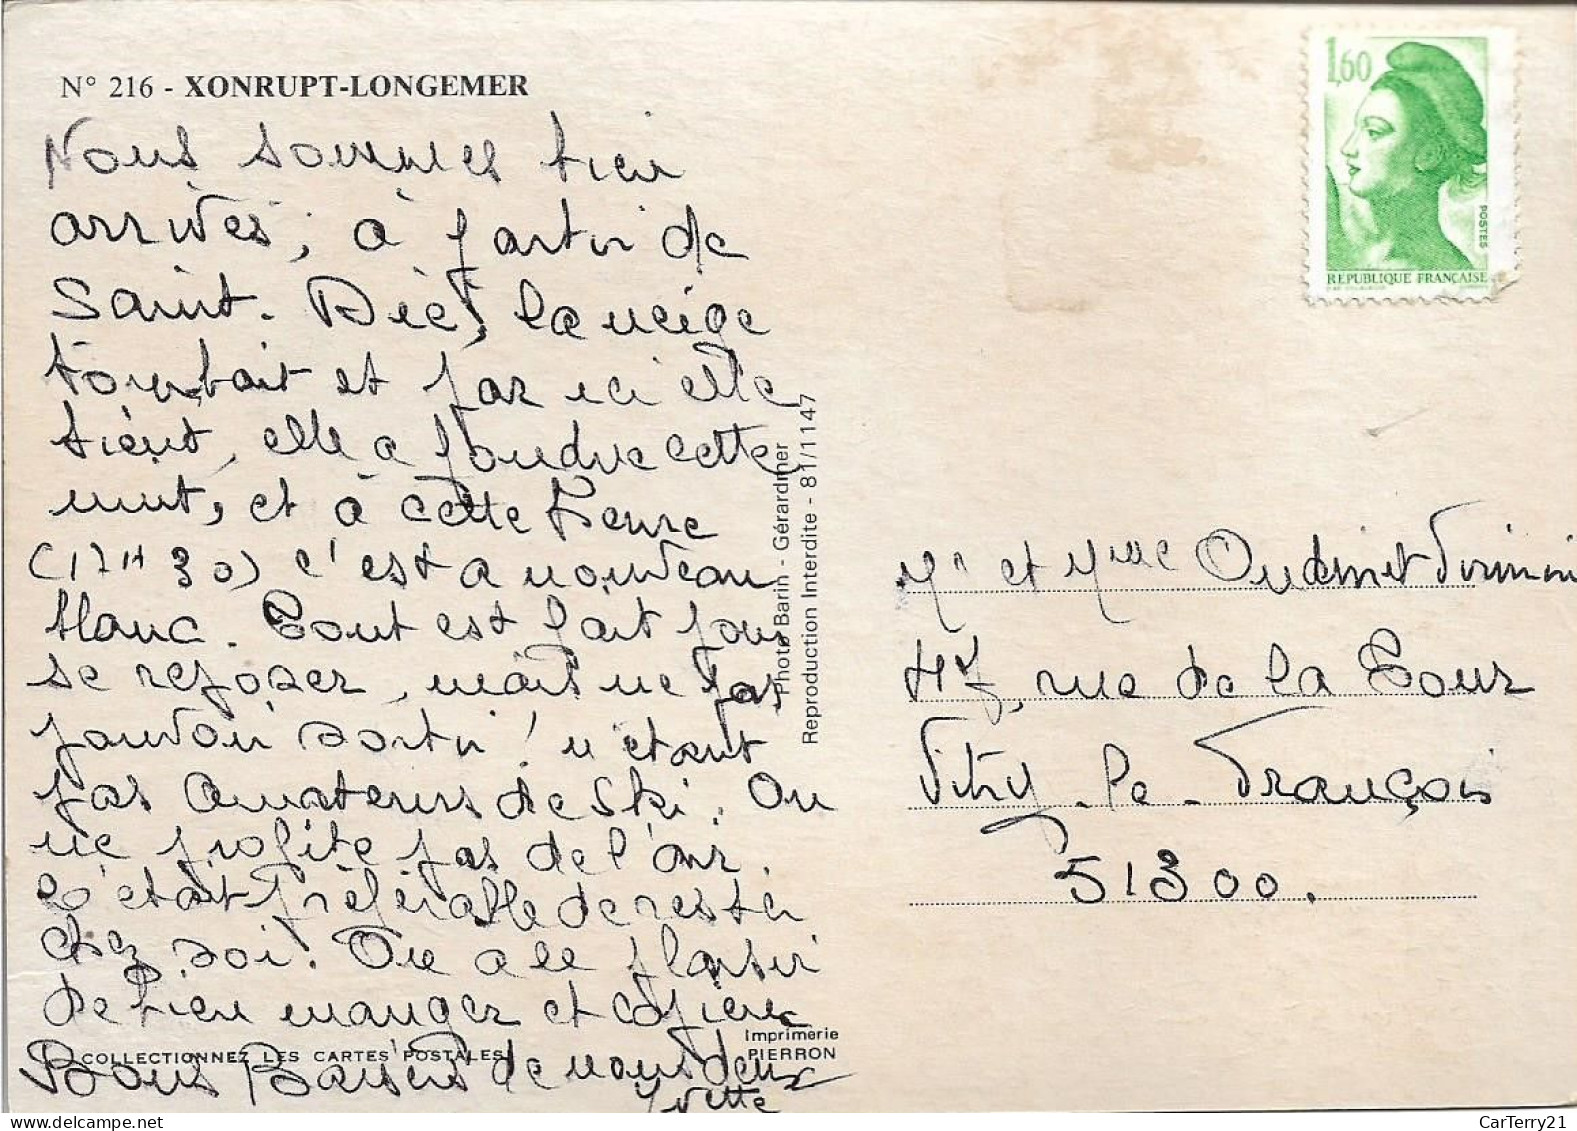 N° 216 - XONRUPT-LONGEMER
Nous sommes bien
arrivés, à partir de
Saint-Dié, la neige
tombait et par ici elle
tient, elle a fondue cette
nuit, et à cette heure
(17H30) c'est a nouveau
blanc. Tout est fait pour
se reposer, mais ne pas
pouvoir sortir ! n'étant
pas amateurs de Ski. On
ne profite pas de l'air.
c'était préférable de rester
chez soi. On a le plaisir
de bien manger et copieux
Bons Baisers de nous deux
Yvette
COLLECTIONNEZ LES CARTES POSTALES
Imprimerie
PIERRON
Photo Barin - Gérardmer
Reproduction Interdite - 81/1147
1,60
POSTES
REPUBLIQUE FRANÇAISE
Mr et Mme Oudinet
47, rue de la Tour
Vitry-le-François
51300.
CarTerry21